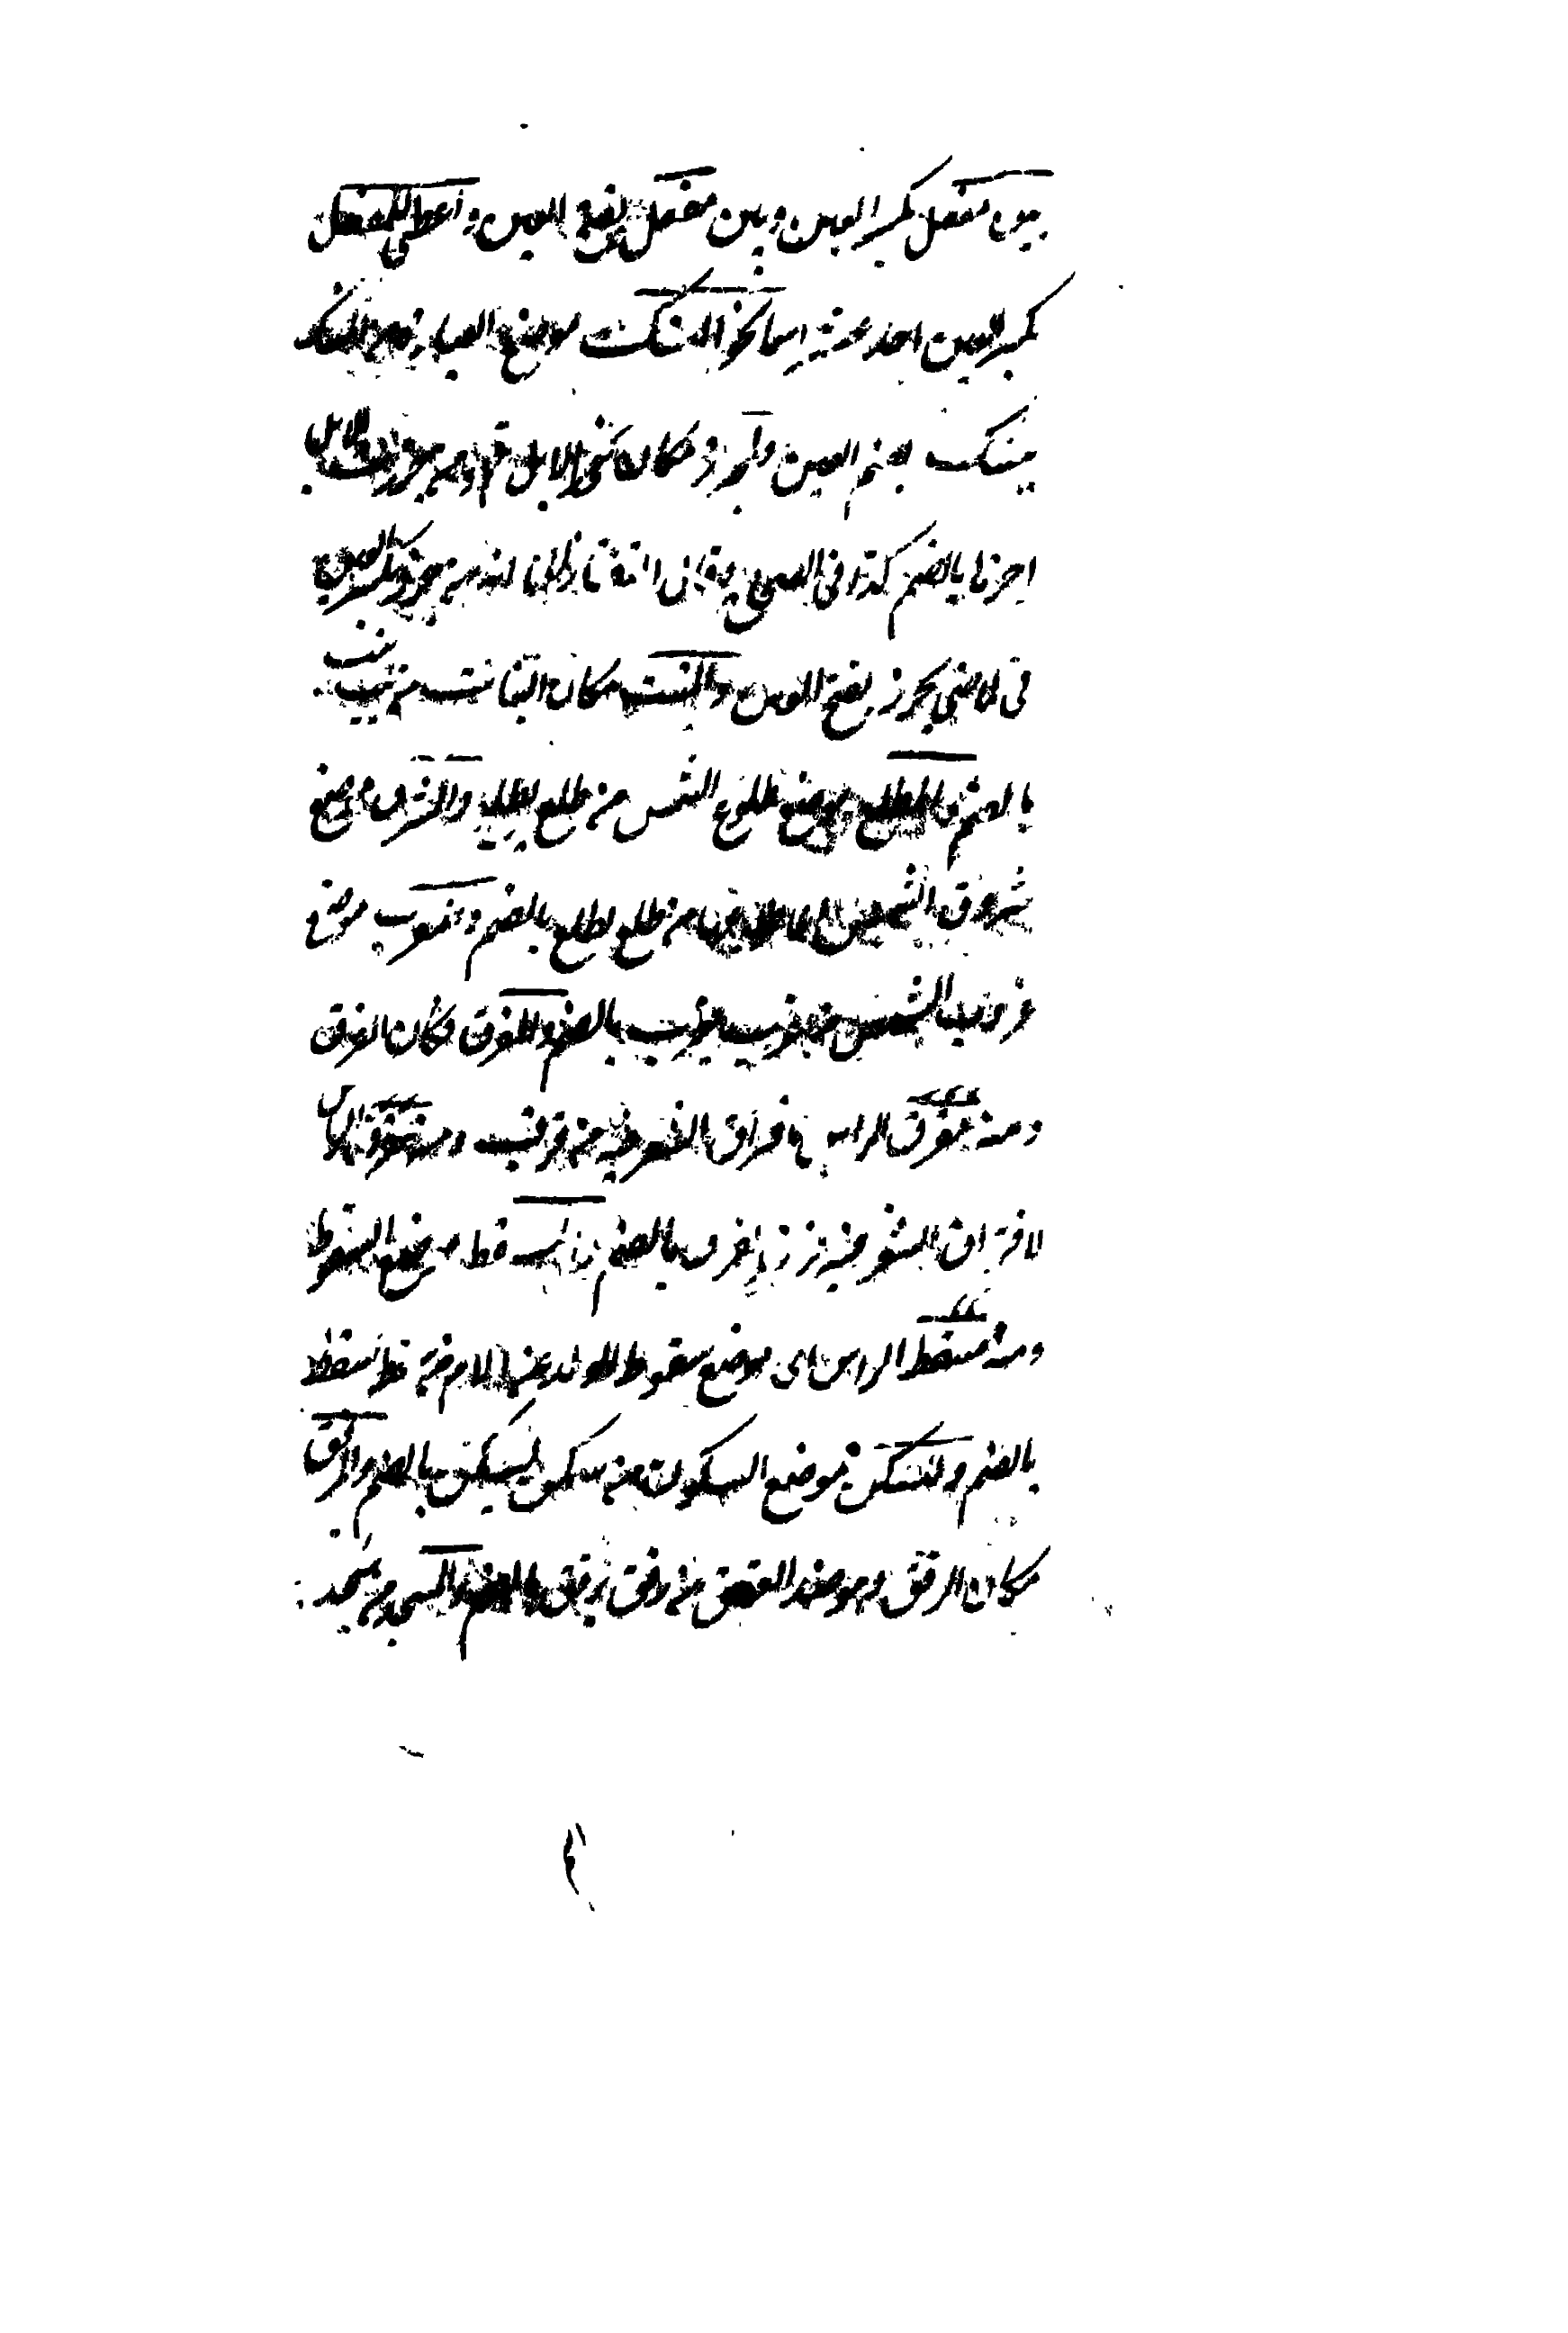 بين مفعل بكسر العين وبين مفعل بفتح العين واعطى للمفعل
بكسر العين احد عشر اسما نحو المنسك موضع العبادة من نسك
ينسك بضم العين والمجزر مكان نحر الابل من جزرت الابل
اجزرها بالضم كذا في الصحاح
في الماضي يجزر بفتح العين والمنبت مكان النبات من نبت ينبت
بالضم والمطلع موضع طلوع الشمس من طلع يطلع والمشرق موضع
شروق الشمس من طلع يطلع بالضم والمغرب موضع
غروب الشمس من غرب يغرب بالضم والمفرق مكان الفرق
ومنه مفرق الراس لافتراق الشعر فيه من فرقت ومنه مفرق الراس
لافتراق الشعر فيه بالضم والمسقط موضع السقوط
ومنه مسقط الراس اى موضع سقوط الولد من الام من سقط يسقط
بالضم والمسكن موضع السكون من سكن يسكن بالضم والمرفق
مكان الرفق من رفق يرفق بالضم والمسجد من سجد